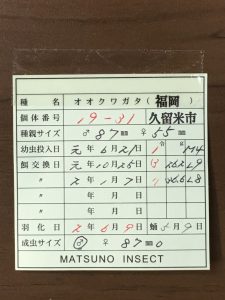 種名 オオクワガタ(福岡)
個体番号 19-31 久留米市
種親サイズ ♂ 87 ㎜ ♀ 55 ㎜
幼虫投入日 元年6月21日
餌交換日 元年10月25日
〃 2年1月7日
〃 年 月 日
年 月 日
羽化日 2年6月9日 蛹5月9日
成虫サイズ ♂ ♀ 87㎜0
MATSUNO INSECT